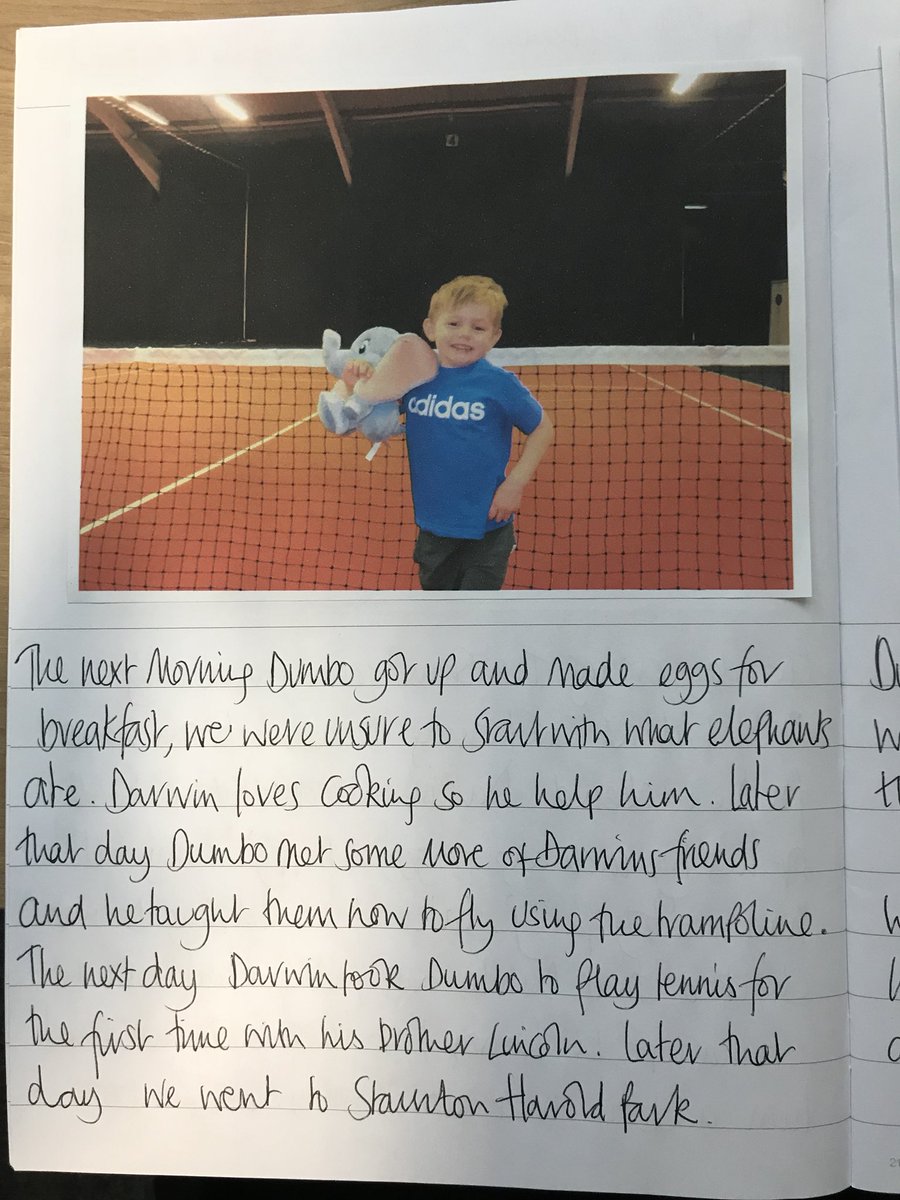 4
adidas
The next Morning Dumbo got up and made eggs for
breakfast, we were unsure to start with what elephants
ate. Darwin loves cooking so he help him. Later
that day Dumbo met some more of Darwins friends
and he taught them how to fly using the trampoline.
The next day Darwin took Dumbo to play tennis for
the first time with his brother Lincoln. Later that
day we went to Staunton Harold Park.